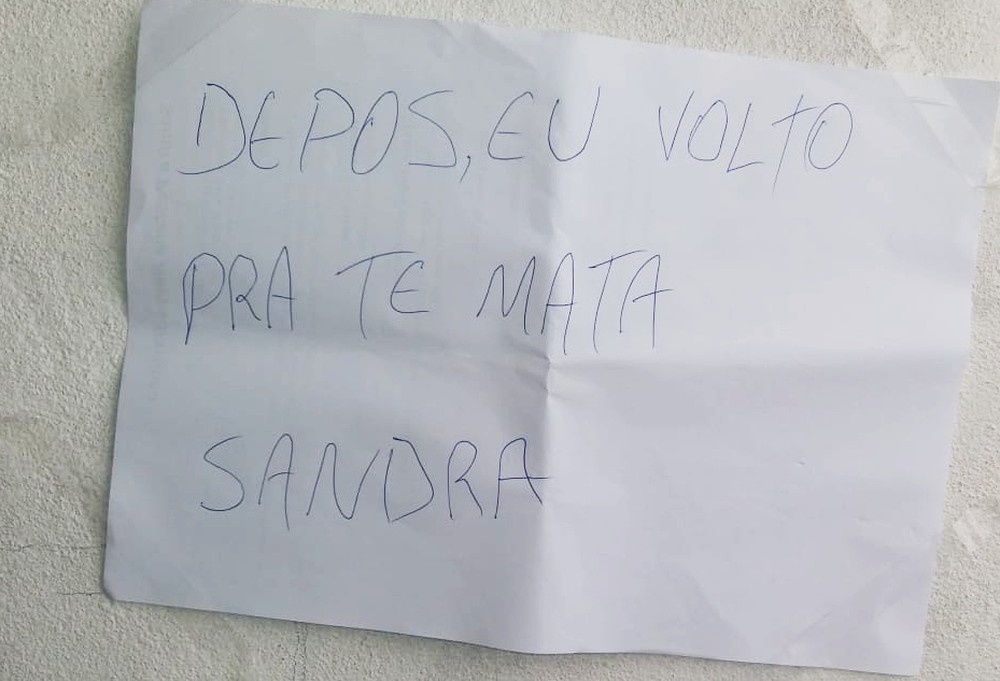 DEPOS, EU VOLTO
PRA TE MATA
SANDRA